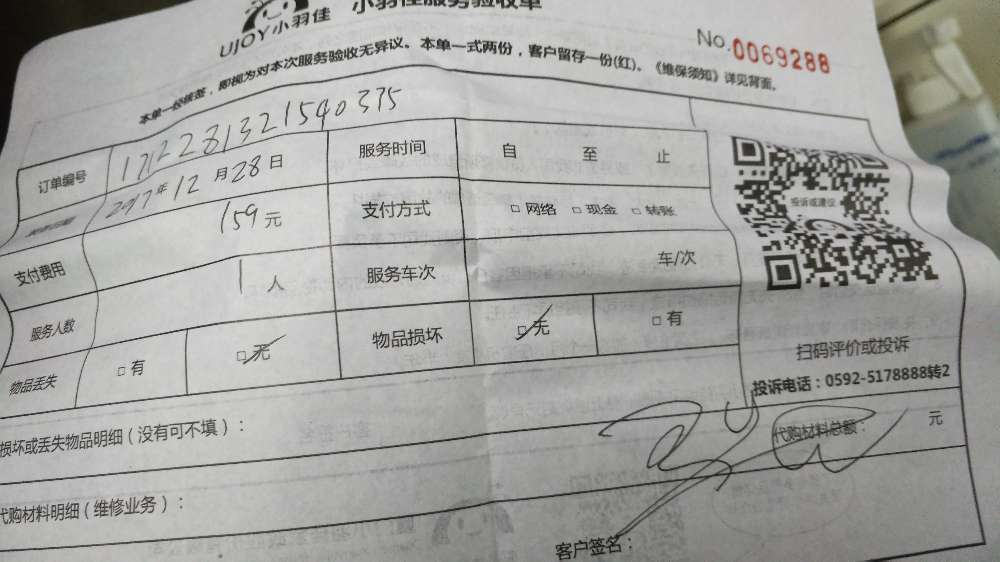 UJOY小羽佳 小羽佳服务验收单
No.0069288
本单一经核签，即视为对本次服务验收无异议。本单一式两份，客户留存一份(红)。《维保须知》详见背面。
订单编号 1712281321540375
2017年12月28日 服务时间 自 至 止
支付费用 159元 支付方式 □网络 □现金 □转账
服务人数 1人 服务车次 车/次
物品丢失 □有 □无 物品损坏 □无 □有
投诉或建议
扫码评价或投诉
投诉电话：0592-5178888转2
损坏或丢失物品明细（没有可不填）：
代购材料总额： 元
代购材料明细（维修业务）：
客户签名：